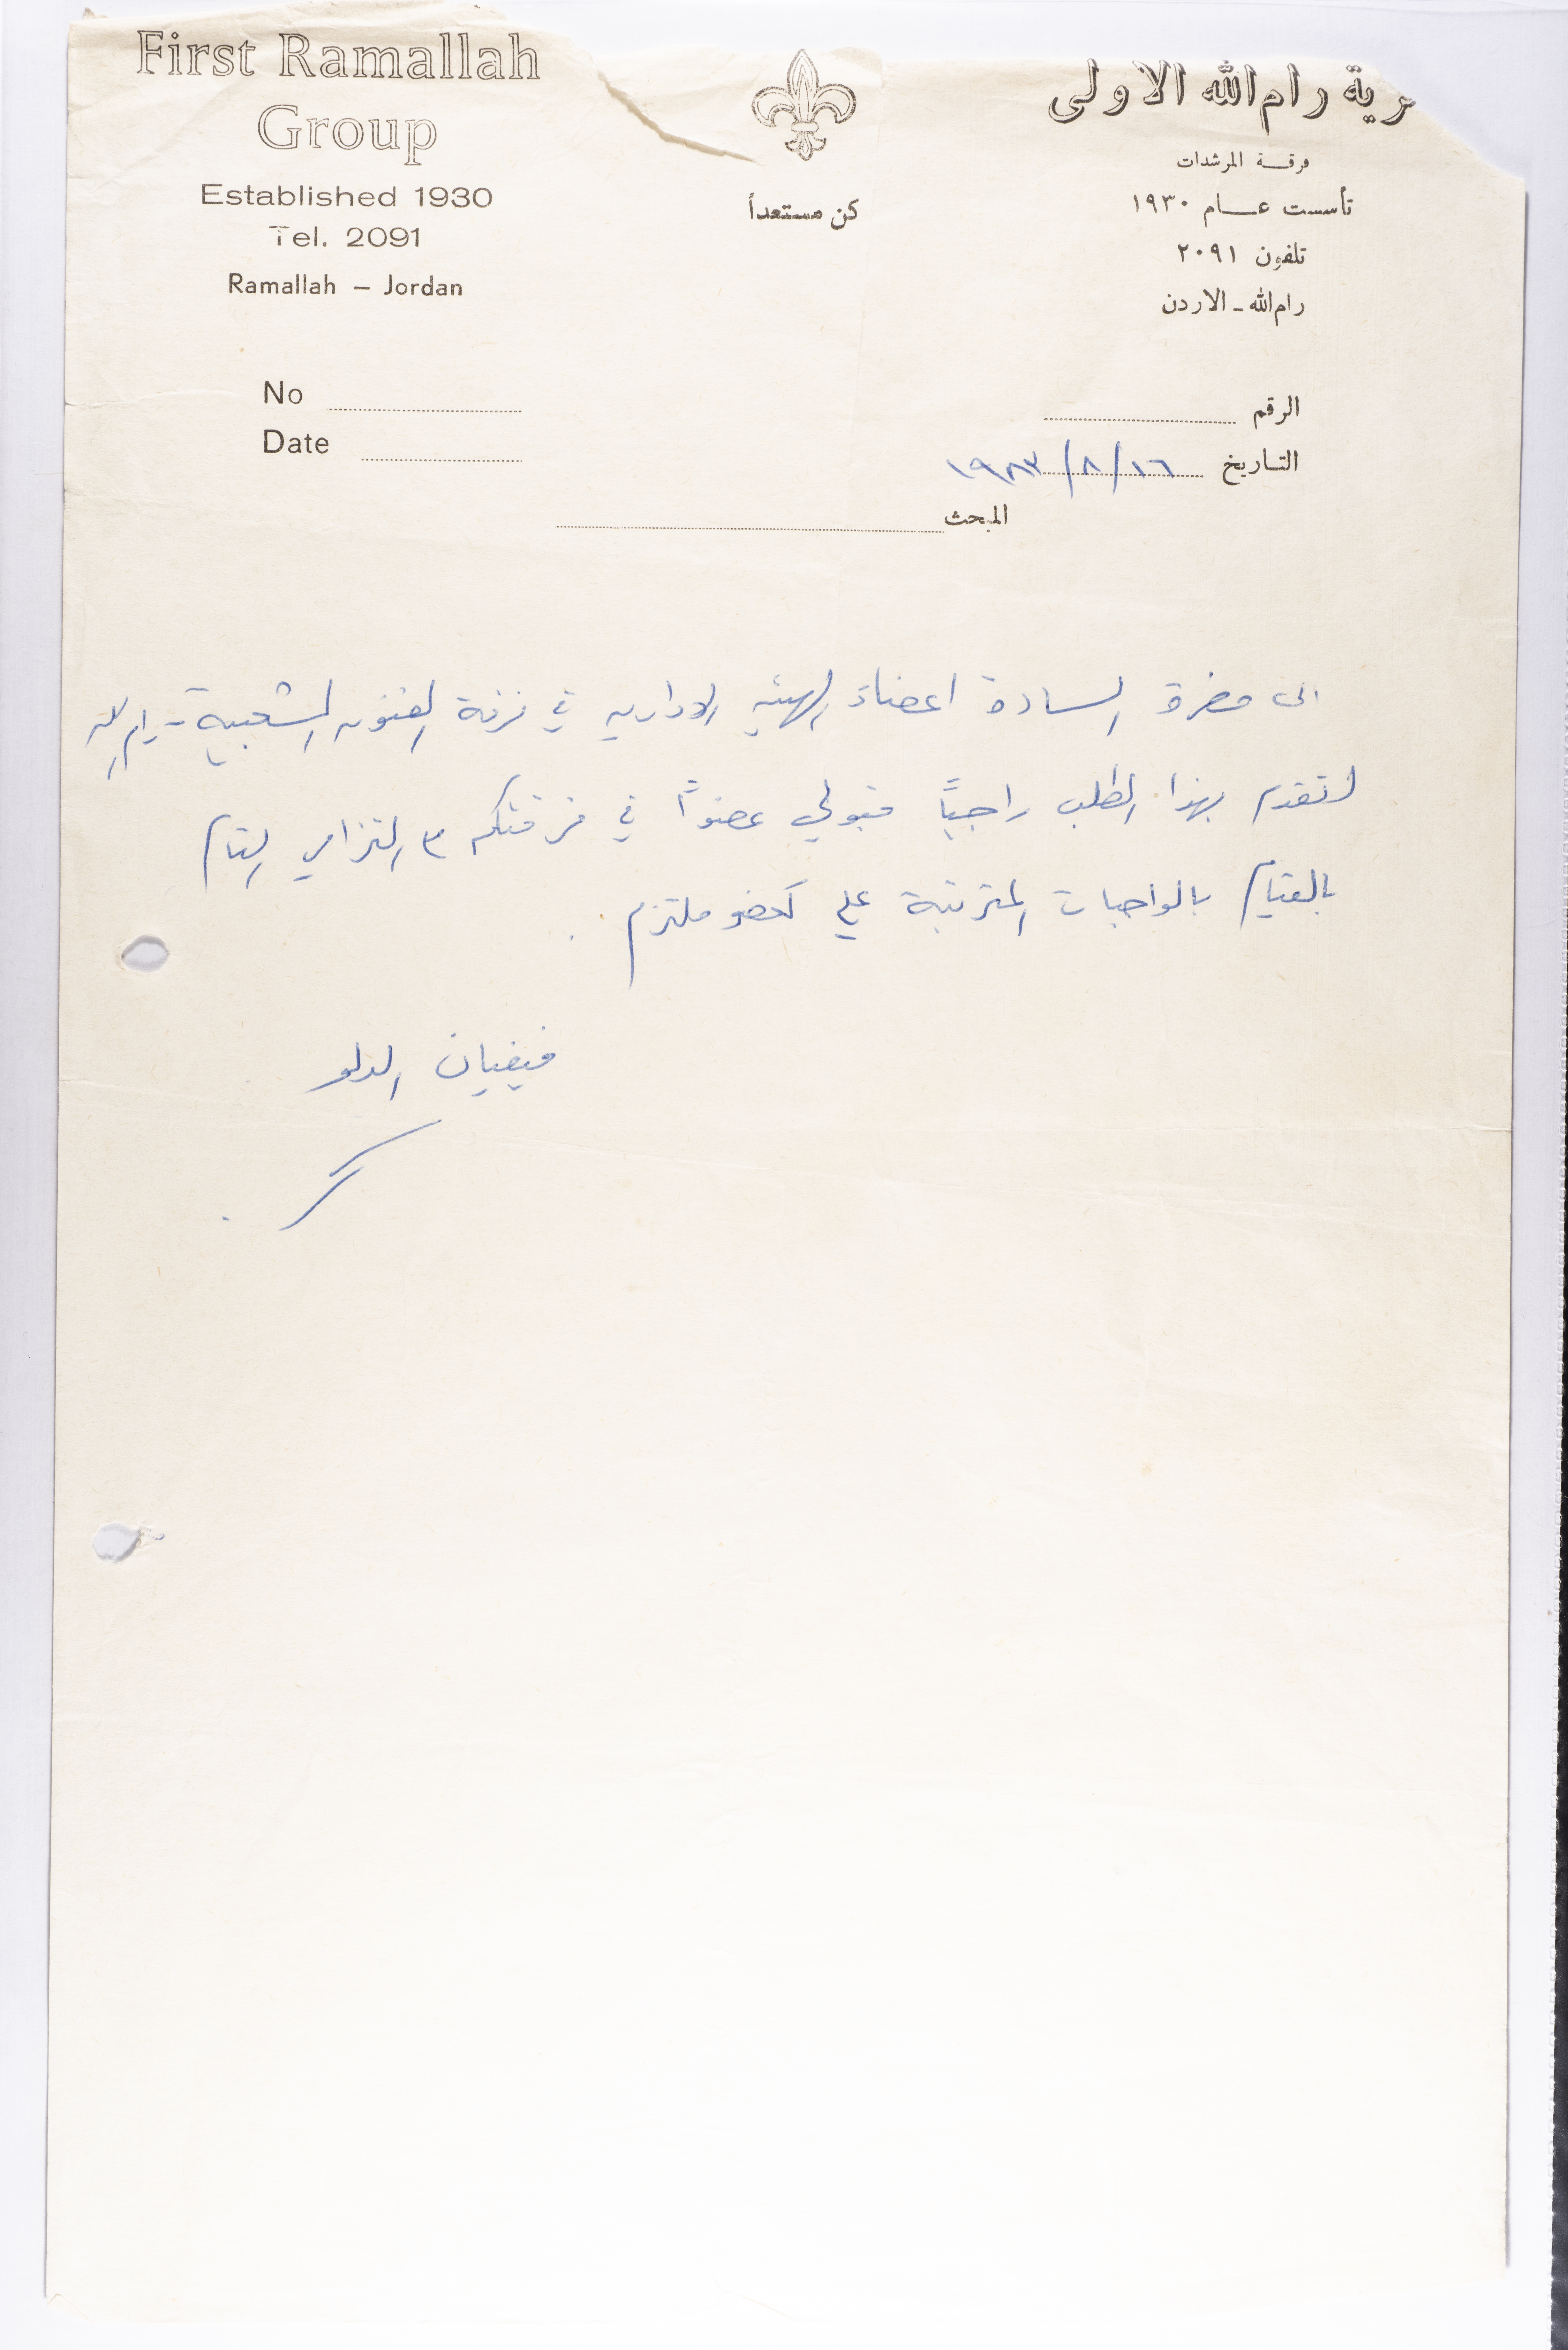 First Ramallah
Group
Established 1930
Tel. 2091
Ramallah – Jordan
كن مستعداً
رية رام الله الاولى
فرقة المرشدات
تأسست عام ١٩٣٠
تلفون ٢٠٩١
رام الله - الاردن
No
Date
الرقم
التاريخ ١٦/٨/١٩٨٣
المبحث
الى حضرة السادة اعضاء الهيئه الاداريه في فرقة الفنون الشعبية - رام الله
اتقدم بهذا الطلب راجياً قبولي عضواً في فرقتكم مع التزامي التام
بالقيام بالواجبات المترتبة علي كعضو ملتزم .
فيفيان الدلو